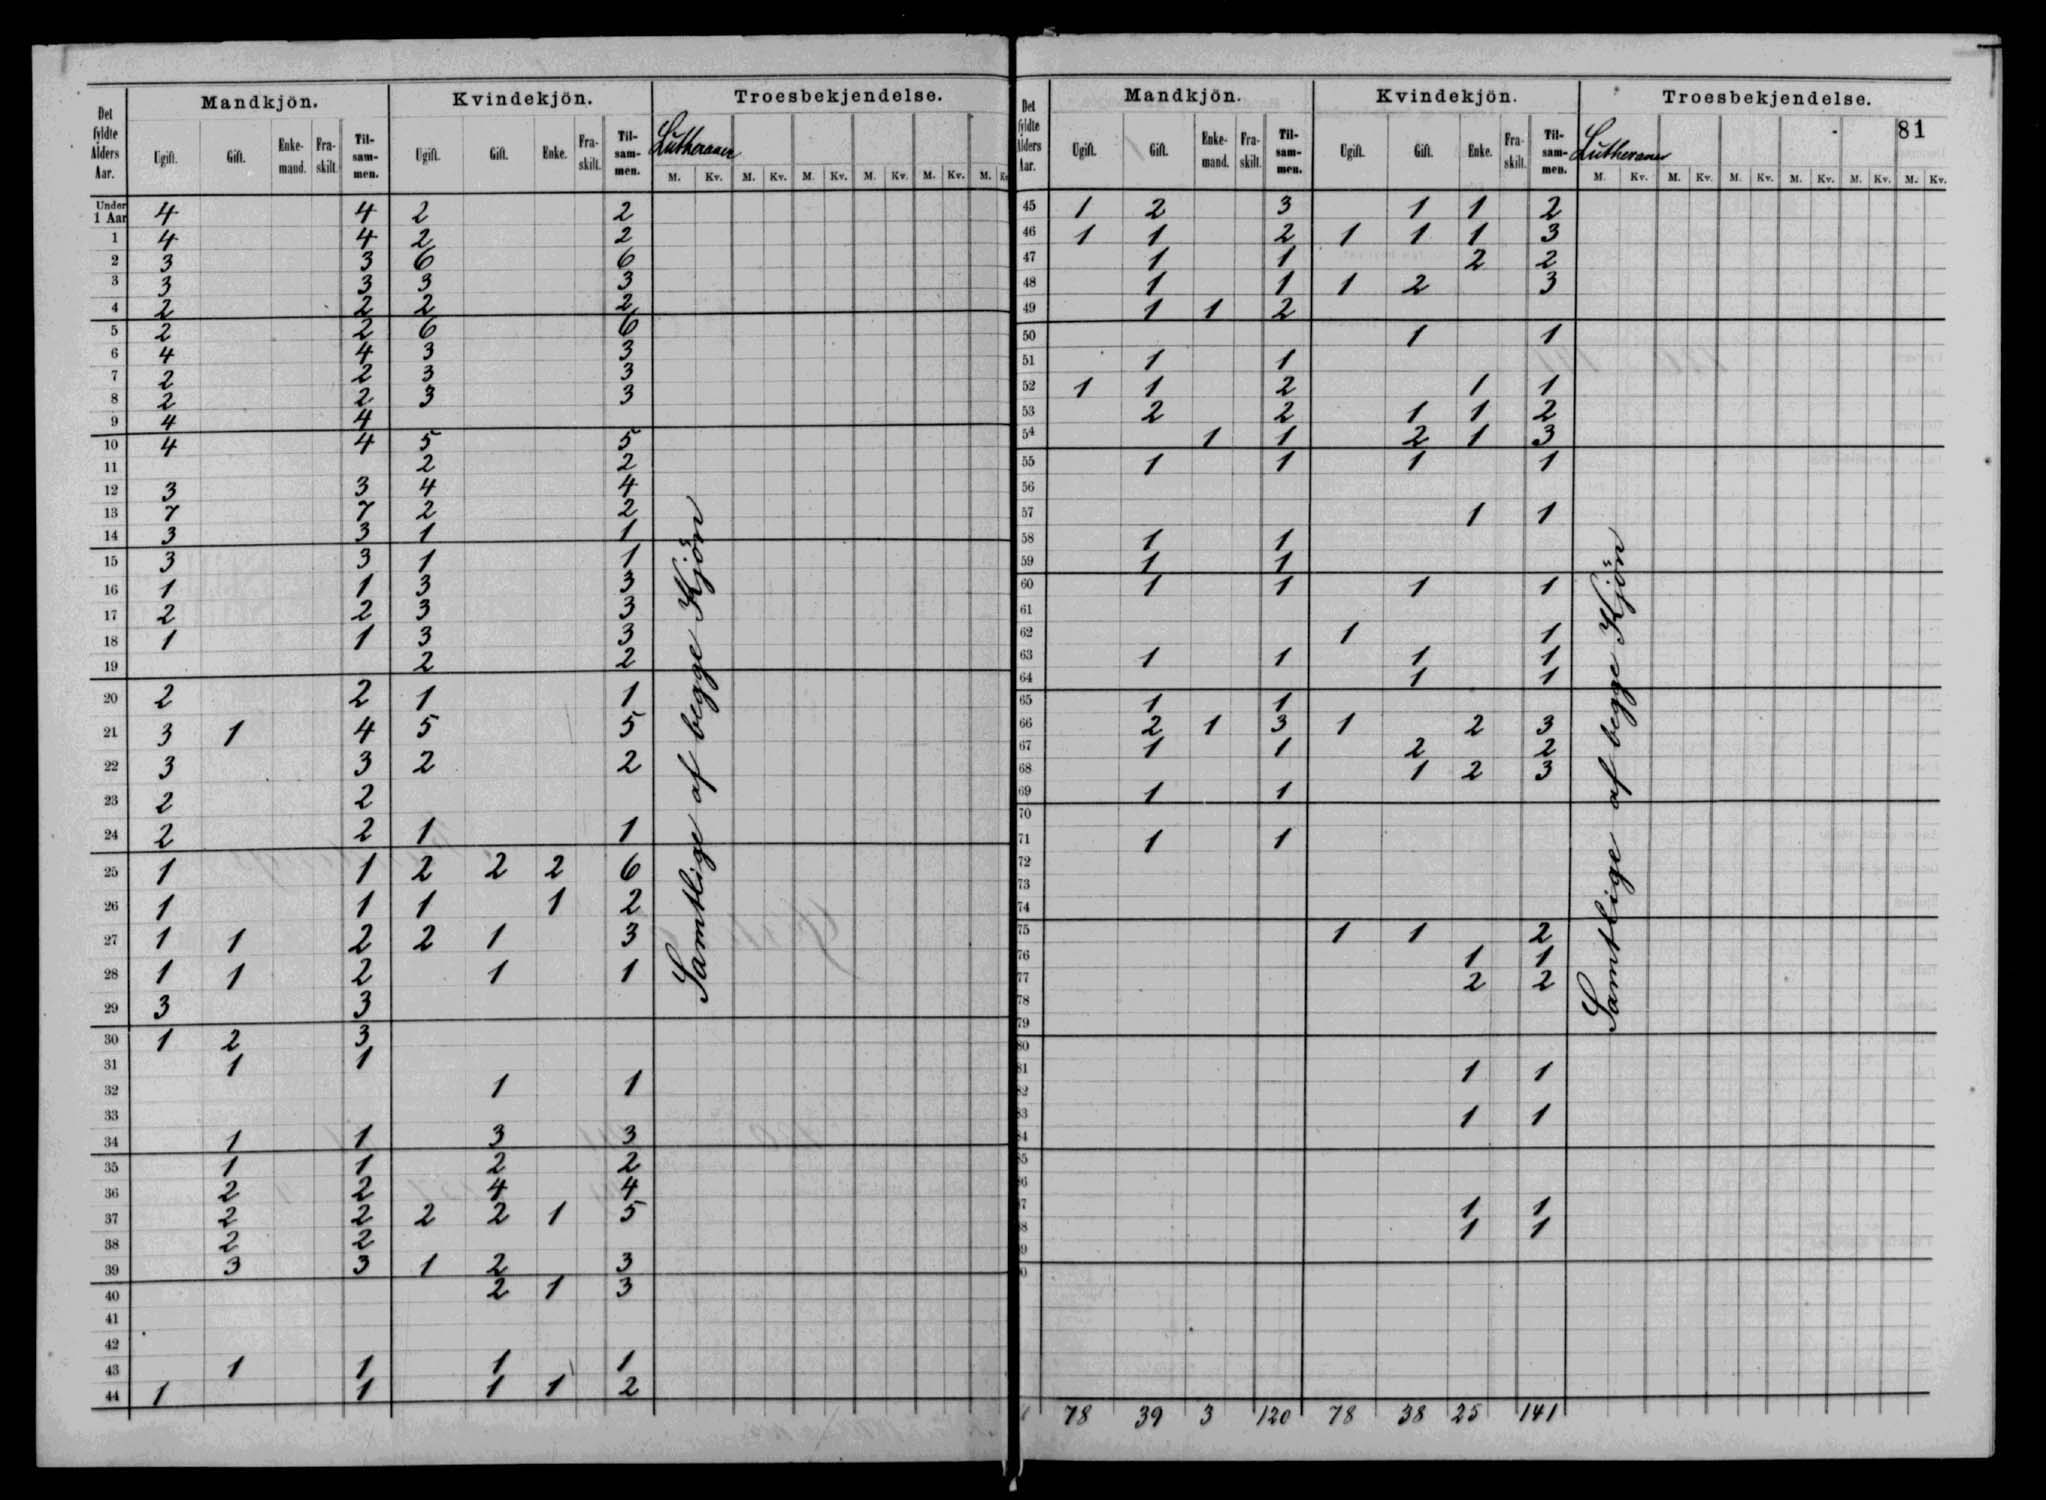 Det fyldte Alders Aar. Mandkjön. Kvindekjön. Troesbekjendelse.
Ugift. Gift. Enke-mand. Fra-skilt. Til-sam-men. Ugift. Gift. Enke. Fra-skilt. Til-sam-men. Lutheraner
M. Kv. M. Kv. M. Kv. M. Kv. M. Kv. M.
Under 1 Aar 4 4 2 2
1 4 4 2 2
2 3 3 6 6
3 3 3 3 3
4 2 2 2 2
5 2 2 6 6
6 4 4 3 3
7 2 2 3 3
8 2 2 3 3
9 4 4
10 4 4 5 5
11 2 2
12 3 3 4 4
13 7 7 2 2
14 3 3 1 1
15 3 3 1 1
16 1 1 3 3
17 2 2 3 3
18 1 1 3 3
19 2 2
20 2 2 1 1
21 3 1 4 5 5
22 3 3 2 2
23 2 2
24 2 2 1 1
25 1 1 2 2 2 6
26 1 1 1 1 2
27 1 1 2 2 1 3
28 1 1 2 1 1
29 3 3
30 1 2 3
31 1 1
32 1 1
33
34 1 1 3 3
35 1 1 2 2
36 2 2 4 4
37 2 2 2 2 1 5
38 2 2
39 3 3 1 2 3
40 2 1 3
41
42
43 1 1 1 1
44 1 1 1 1 2
Samtlige af begge Kjön
81
Det fyldte Alders Aar. Mandkjön. Kvindekjön. Troesbekjendelse.
Ugift. Gift. Enke-mand. Fra-skilt. Til-sam-men. Ugift. Gift. Enke. Fra-skilt. Til-sam-men. Lutheraner
M. Kv. M. Kv. M. Kv. M. Kv. M. Kv. M. Kv.
45 1 2 3 1 1 2
46 1 1 2 1 1 1 3
47 1 1 2 2
48 1 1 1 2 3
49 1 1 2
50 1 1
51 1 1
52 1 1 2 1 1
53 2 2 1 1 2
54 1 1 2 1 3
55 1 1 1 1
56
57 1 1
58 1 1
59 1 1
60 1 1 1 1
61
62 1 1
63 1 1 1 1
64 1 1
65 1 1
66 2 1 3 1 2 3
67 1 1 2 2
68 1 2 3
69 1 1
70
71 1 1
72
73
74
75 1 1 2
76 1 1
77 2 2
78
79
80
81 1 1
82
83 1 1
84
85
86
87 1 1
88 1 1
89
90
78 39 3 120 78 38 25 141
Samtlige af begge Kjön